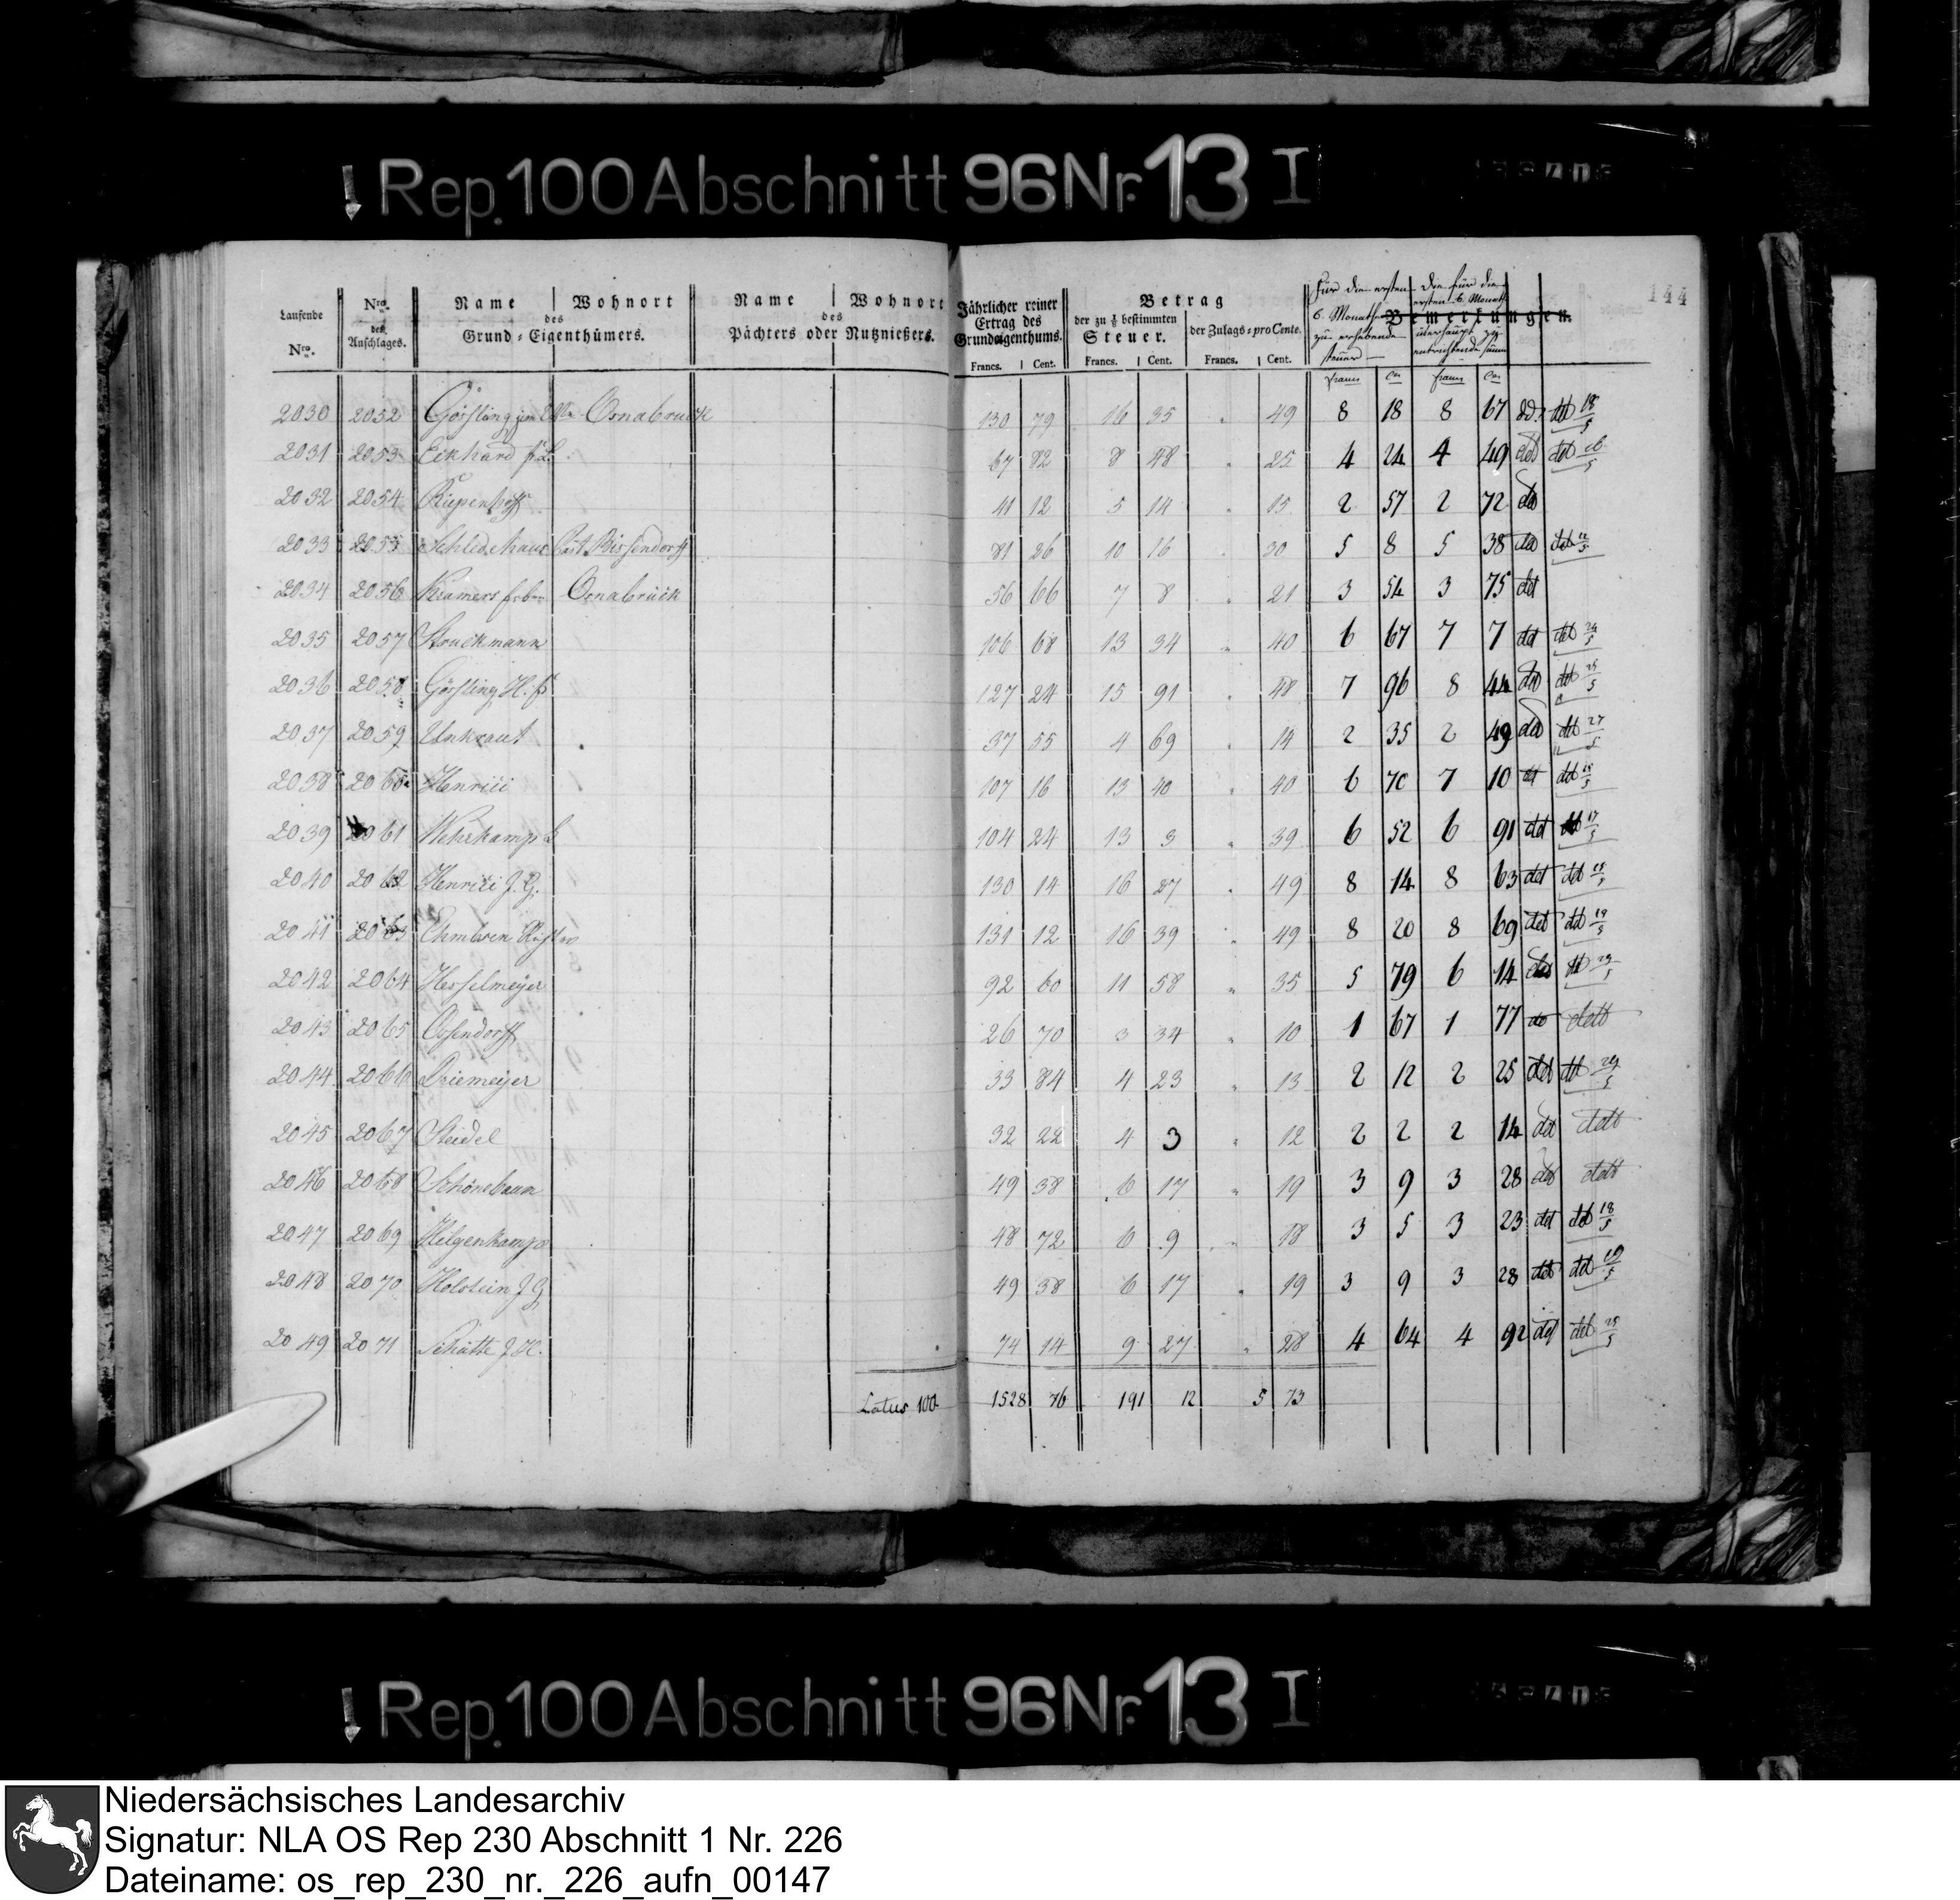 Rep. 100 Abschnitt 96 Nr. 13 I
144
Laufende Nro.
Nro. des Anschlages.
Name Wohnort
des
Grund-Eigenthümers.
Name Wohnort
des
Pächters oder Nutznießers.
Jährlicher reiner Ertrag des Grundeigenthums.
Francs. Cent.
Betrag
der zu 1/8 bestimmten Steuer.
Francs. Cent.
der Zulags-pro Cente.
Francs. Cent.
Für die ersten 6. Monathe zu erhebende Steuer
Die für die ersten 6. Monath überhaupt zu entrichtende Summe
Bemerkungen.
francs Ces francs Ces
2030 2052 Görsling Osnabruck 130 79 16 35 " 49 8 18 8 67 dd. det 18/5
2031 2053 Eckhard 67 82 8 48 " 25 4 24 4 49 det det
2032 2054 Riepenhoff 41 12 5 14 " 15 2 57 2 72 det
2033 2055 Schledehaus Bissendorff 81 26 10 16 " 30 5 8 5 38 det det 12/5
2034 2056 Kramers Osnabrück 56 66 7 8 " 21 3 54 3 75 det
2035 2057 Struckmann 106 68 13 34 " 40 6 67 7 7 det det 24/5
2036 2058 Görsling H. 127 24 15 91 " 48 7 96 8 44 det det 25/5
2037 2059 Unkraut 37 55 4 69 " 14 2 35 2 49 det det 27/5
2038 2060 Henrici 107 16 13 40 " 40 6 70 7 10 det det 18/5
2039 2061 Wehrkamp 104 24 13 3 " 39 6 52 6 91 det det 17/5
2040 2062 Henrici J. G. 130 14 16 27 " 49 8 14 8 63 det det 18/5
2041 2063 Ehmbsen 131 12 16 39 " 49 8 20 8 69 det det 19/5
2042 2064 Hesselmeyer 92 60 11 58 " 35 5 79 6 14 det det 23/5
2043 2065 Ossendorff 26 70 3 34 " 10 1 67 1 77 det dett
2044 2066 Driemeyer 33 84 4 23 " 13 2 12 2 25 det det 24/5
2045 2067 Steidel 32 22 4 3 " 12 2 2 2 14 det dett
2046 2068 Schönebaum 49 38 6 17 " 19 3 9 3 28 det dett
2047 2069 Hilgenkamp 48 72 6 9 " 18 3 5 3 23 det det 18/5
2048 2070 Holstein J G 49 38 6 17 " 19 3 9 3 28 det det 19/5
2049 2071 Schütte J. H. 74 14 9 27 " 28 4 64 4 92 det det 25/5
Latus 100 1528 76 191 12 5 73
Rep. 100 Abschnitt 96 Nr. 13 I
Niedersächsisches Landesarchiv
Signatur: NLA OS Rep 230 Abschnitt 1 Nr. 226
Dateiname: os_rep_230_nr._226_aufn_00147